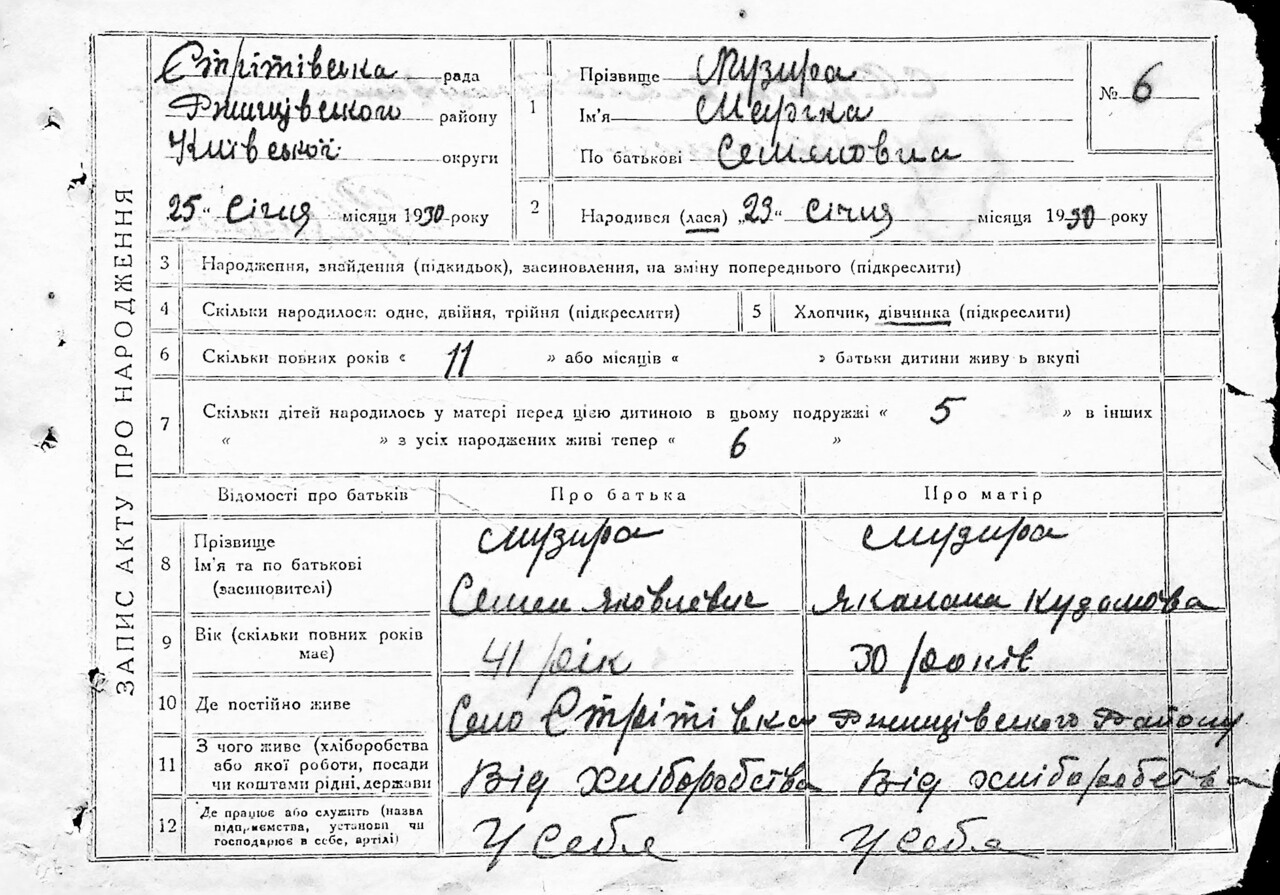 ЗАПИС АКТУ ПРО НАРОДЖЕННЯ
Єтрітівська рада
Ржищівського району
Київської округи
25 " Січня місяця 1930 року
1
Прізвище Музира
Ім'я
По батькові Семеновна
№ 6
2
Народився (лася) „23“ Січня місяця 1930 року
3 Народження, знайдення (підкидьок), засиновлення, на зміну попереднього (підкреслити)
4 Скільки народилося: одне, двійня, трійня (підкреслити)
5 Хлопчик, дівчинка (підкреслити)
6 Скільки повних років « 11 » або місяців « » батьки дитини живу ь вкупі
7 Скільки дітей народилось у матері перед цією дитиною в цьому подружжі « 5 » в інших
« » з усіх народжених живі тепер « 6 »
Відомості про батьків Про батька Про матір
8 Прізвище
Ім'я та по батькові
(засиновителі)
Музира
Семен Яковлевич
Музира
9 Вік (скільки повних років
має)
41 рік
30 років
10 Де постійно живе
Село Єтрітівка Ржищівського Району
11 З чого живе (хліборобства
або якої роботи, посади
чи коштами рідні, держави
Від хліборобства
Від хліборобства
12 Де працює або служить (назва
підприємства, установи чи
господарює в себе, артілі)
У себе
У себе